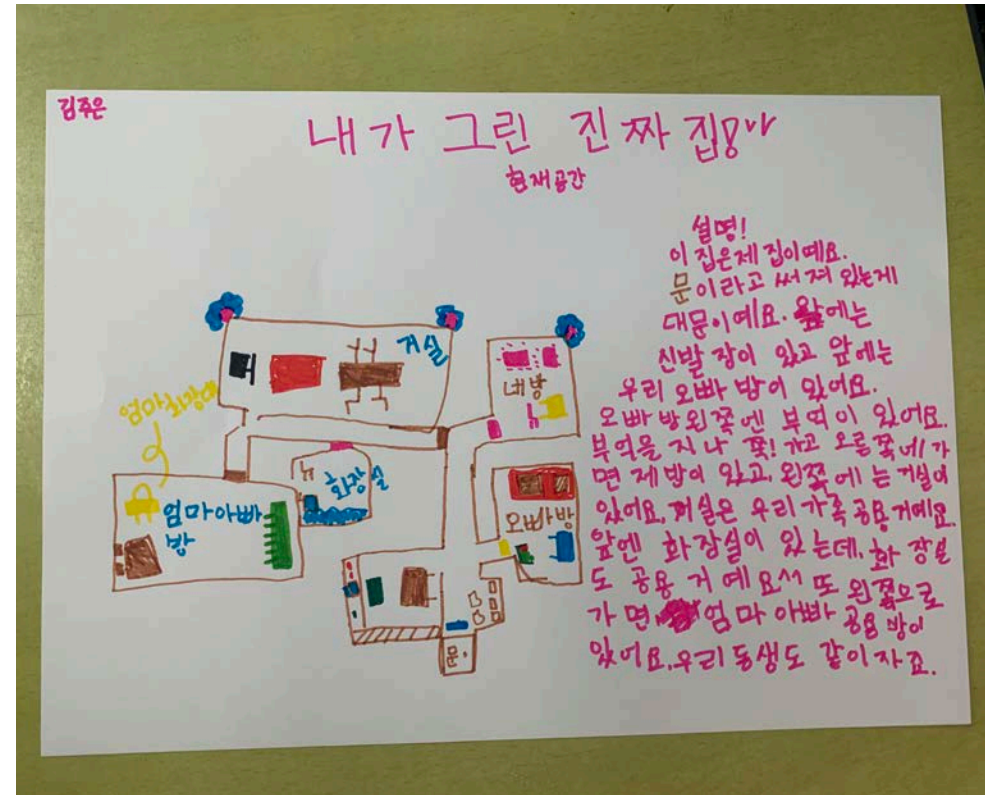 김주은
내가 그린 진짜 집!
현재공간
설명!
이 집은 제 집이예요.
문이라고 써져 있는게
대문이예요. 앞에는
신발장이 있고 앞에는
우리 오빠 방이 있어요.
오빠방왼쪽엔 부엌이 있어요.
부엌을 지나 쭉! 가고 오른쪽네/가
면 제방이 있고, 왼쪽에는 거실이
있어요, 거실은 우리 가족 공용 거예요.
앞엔 화장실이 있는데, 화장실
도 공용 거 예요
또 왼쪽으로
가면 엄마 아빠 공용 방이
있어요. 우리 동생도 같이 자죠.
거실
내방
엄마 화장대
엄마아빠
방
화장실
오빠방
문.